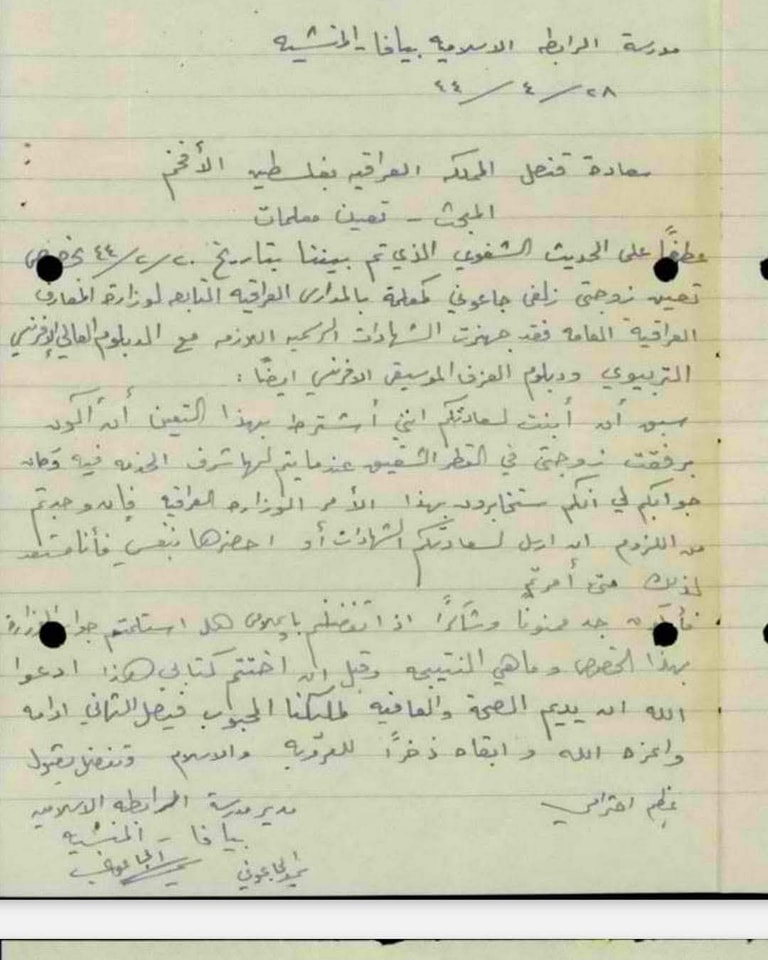 مدرسة الرابطه الاسلاميه بيافا - المنشيه
٢٨ / ٤ / ٤٤
سعادة قنصل المملكه العراقيه بفلسطين الأفخم
المبحث - تعيين معلمات
عطفاً على الحديث الشفوي الذي تم بيننا بتاريخ ٢٠ / ٢ / ٤٤ بخصوص
تعيين زوجتي زلفى جاعوني كمعلمة بالمدارس العراقيه التابعه لوزارة المعارف
العراقية العامه فقد جهزت الشهادات الرسميه اللازمه مع الدبلوم العالي الافرنسي
التربيوي ودبلوم العزف الموسيقي الافرنسي ايضاً :
سبق أن أبنت لسعادتكم انني أشترط بهذا التعيين أن أكون
برفقت زوجتي في القطر الشقيق عندما يتم لها شرف الخدمه فيه وكان
جوابكم لي انكم ستخابرون بهذا الأمر الوزاره العراقيه فإن وجدتم
من اللزوم ان ارسل لسعادتكم الشهادات أو احضرها بنفسي فأنا مستعد
لذلك متى أمرتم
فأكون جد ممنوناً وشاكراً اذا تفضلتم بإعلامي هل استلمتم جواب الوزارة
بهذا الخصوص وما هي النتيجه وقبل ان اختتم كتابي هذا ادعوا
الله ان يديم الصحة والعافيه لمليكنا المحبوب فيصل الثاني ادامه
واعزه الله وابقاه ذخراً للعروبه والاسلام وتفضل بقبول
عظيم احترامي
مدير مدرسة الرابطه الاسلاميه
بيافا - المنشيه
الجاعوني